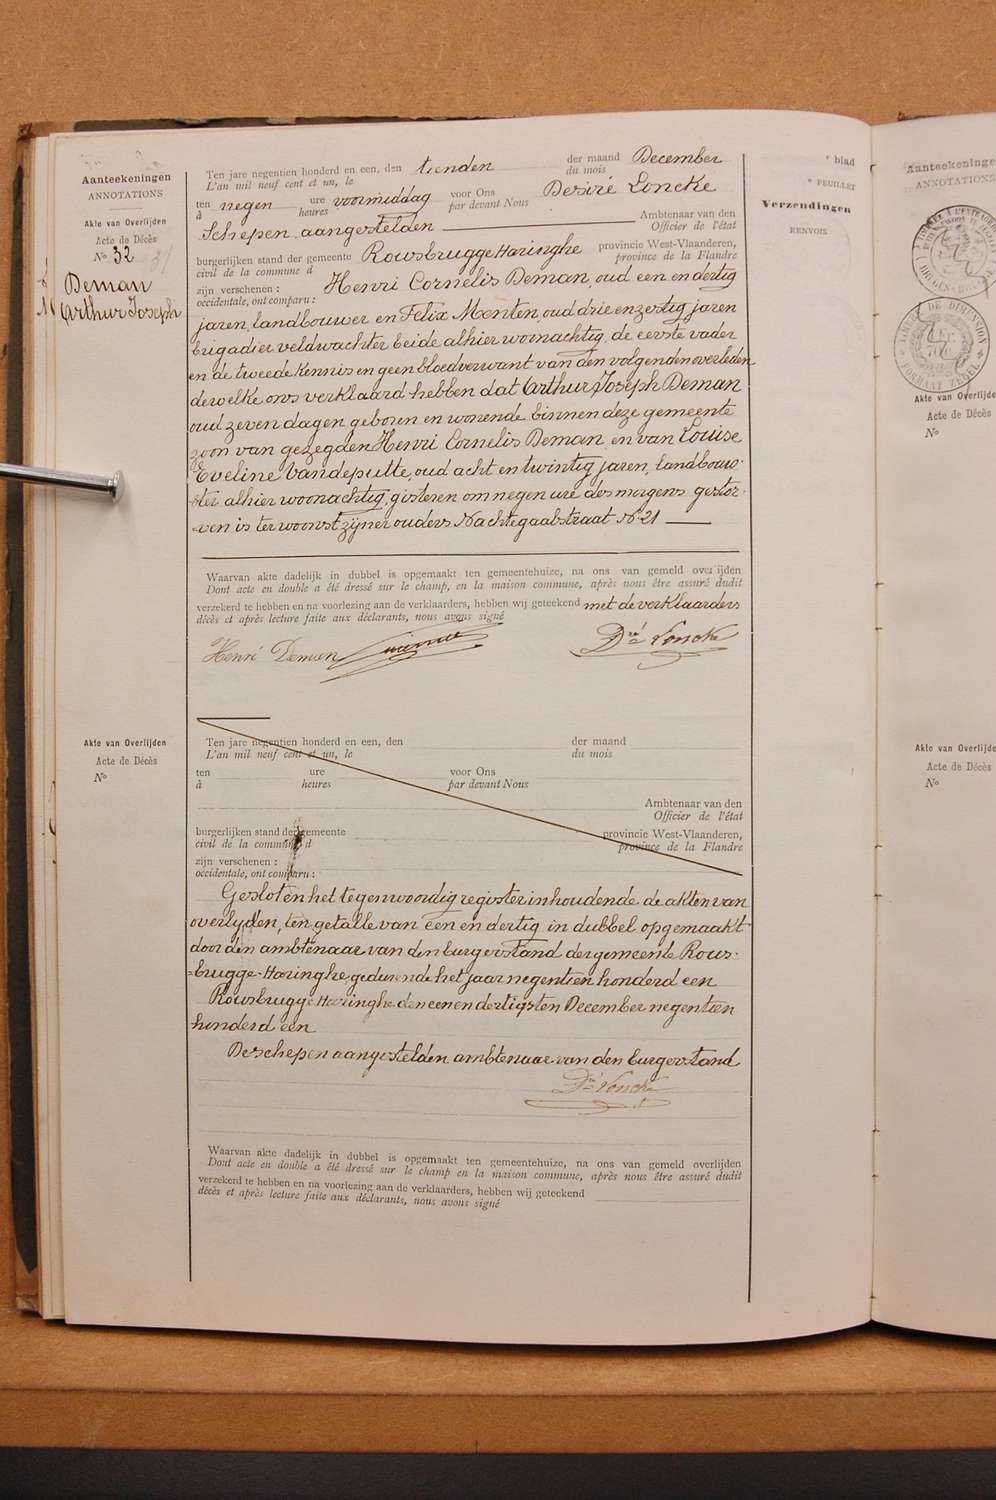 Aanteekeningen
ANNOTATIONS
Akte van Overlijden
Acte de Décès
No 32
Deman
Arthur Joseph
Ten jare negentien honderd en een, den tienden der maand December
L'an mil neuf cent et un, le du mois
ten negen ure voormiddag voor Ons Desiré Loncke
à heures par devant Nous
Schepen aangestelden Ambtenaar van den
Officier de l'état
burgerlijken stand der gemeente Rousbrugge Haringhe provincie West-Vlaanderen,
civil de la commune d province de la Flandre
zijn verschenen : Henri Cornelis Deman, oud een en dertig
occidentale, ont comparu :
jaren, landbouwer en Felix Meenten, oud drie en zestig jaren
brigadier veldwachter beide alhier woonachtig, de eerste vader
en de tweede kennis en geen bloedverwant van den volgenden overleden
dewelke ons verklaard hebben dat Arthur Joseph Deman
oud zeven dagen geboren en wonende binnen deze gemeente
zoon van gezegden Henri Cornelis Deman en van Louise
Eveline Vandeputte, oud acht en twintig jaren, landbouw-
ster alhier woonachtig, gisteren om negen ure des morgens gestor-
ven is ter woonst zijner ouders Nachtegaalstraat No 21
Waarvan akte dadelijk in dubbel is opgemaakt ten gemeentehuize, na ons van gemeld overlijden
Dont acte en double a été dressé sur le champ, en la maison commune, après nous être assuré dudit
verzekerd te hebben en na voorlezing aan de verklaarders, hebben wij geteekend met de verklaarders
décès et après lecture faite aux déclarants, nous avons signé
Henri Deman Dré Loncke
Akte van Overlijden
Acte de Décès
No
Ten jare negentien honderd en een, den der maand
L'an mil neuf cent et un, le du mois
ten ure voor Ons
à heures par devant Nous
Ambtenaar van den
Officier de l'état
burgerlijken stand der gemeente provincie West-Vlaanderen,
civil de la commune d province de la Flandre
zijn verschenen :
occidentale, ont comparu :
Gesloten het tegenwoordig register inhoudende de akten van
overlyden, ten getalle van een en dertig in dubbel opgemaakt
door den ambtenaar van den burgerstand der gemeente Rous-
brugge-Haringhe, gedurende het jaar negentien honderd een
Rousbrugge Haringhe den een en dertigsten December negentien
honderd een
De schepen aangestelden ambtenaar van den burgerstand
Dré Loncke
Waarvan akte dadelijk in dubbel is opgemaakt ten gemeentehuize, na ons van gemeld overlijden
Dont acte en double a été dressé sur le champ en la maison commune, après nous être assuré dudit
verzekerd te hebben en na voorlezing aan de verklaarders, hebben wij geteekend
décès et après lecture faite aux déclarants, nous avons signé
blad
FEUILLET
Verzendingen
RENVOIS
Aanteekeninge
ANNOTATIONS
TIMBRE DE DIMENSION
FORMAAT ZEGEL
Akte van Overlijde
Acte de Décès
No
Akte van Overlijde
Acte de Décès
No